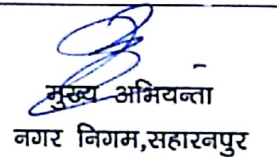 मुख्य अभियन्ता
नगर निगम,सहारनपुर